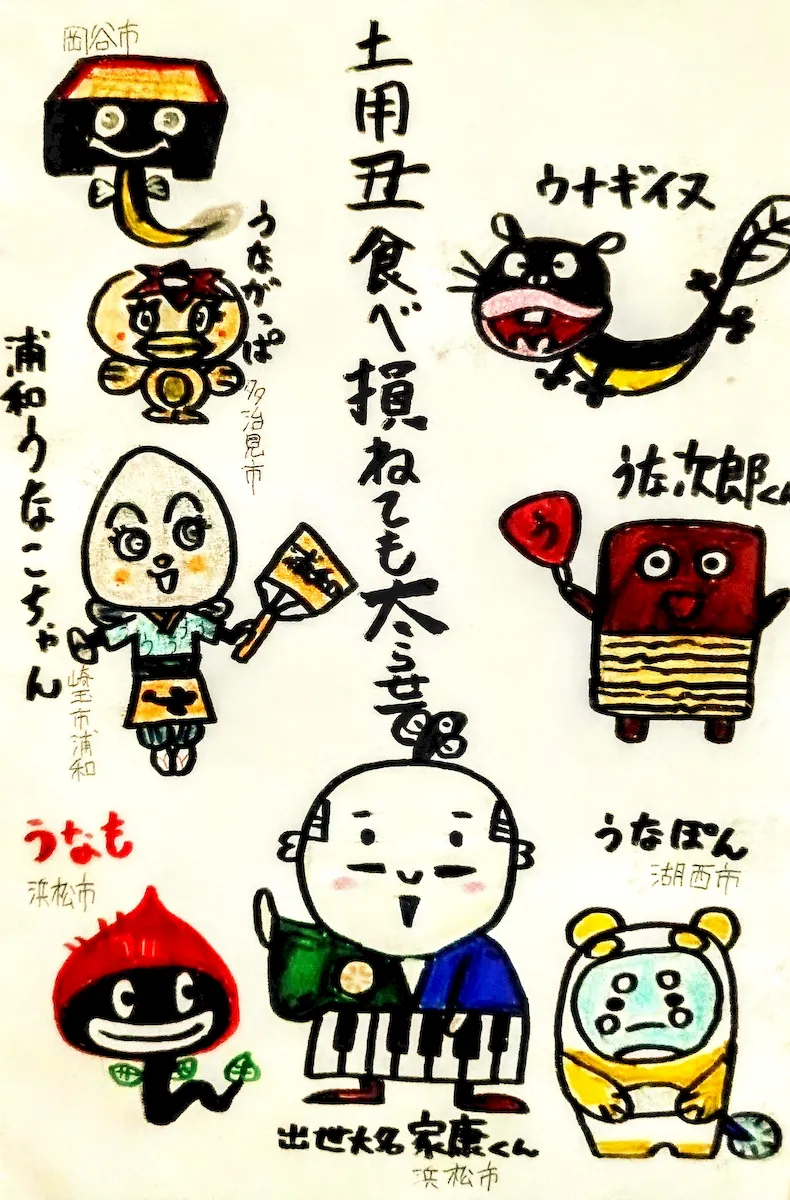 岡谷市
土用丑食べ損ねても太らせて
ウナギイヌ
うながっぱ
多治見市
浦和うなこちゃん
崎玉市浦和
うな次郎くん
う
うなも
浜松市
うなぽん
湖西市
出世大名家康くん
浜松市